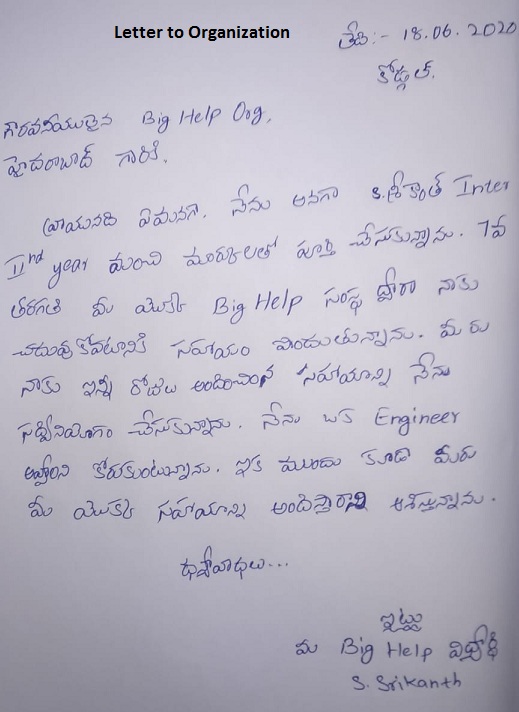 Letter to Organization
తేది:- 18.06.2020
కోడ్గల్.
గౌరవనీయులైన Big Help Org,
హైదరాబాద్ గారికి.
వ్రాయునది ఏమనగా. నేను అనగా S.శ్రీకాంత్ Inter
IInd year మంచి మార్కులతో పూర్తి చేసుకున్నాను. 7వ
తరగతి మీ యొక్క Big Help సంస్థ ద్వారా నాకు
చదువుకోవటానికి సహాయం పొందుతున్నాను. మీరు
నాకు ఇన్ని రోజులు అందించిన సహాయాన్ని నేను
సద్వినియోగం చేసుకున్నాను. నేను ఒక Engineer
అవ్వాలని కోరుకుంటున్నాను. ఇక ముందు కూడా మీరు
మీ యొక్క సహాయాన్ని అందిస్తారాని ఆశిస్తున్నాను.
ధన్యవాధలు...
ఇట్లు
మీ Big Help విద్యార్థి
S. Srikanth